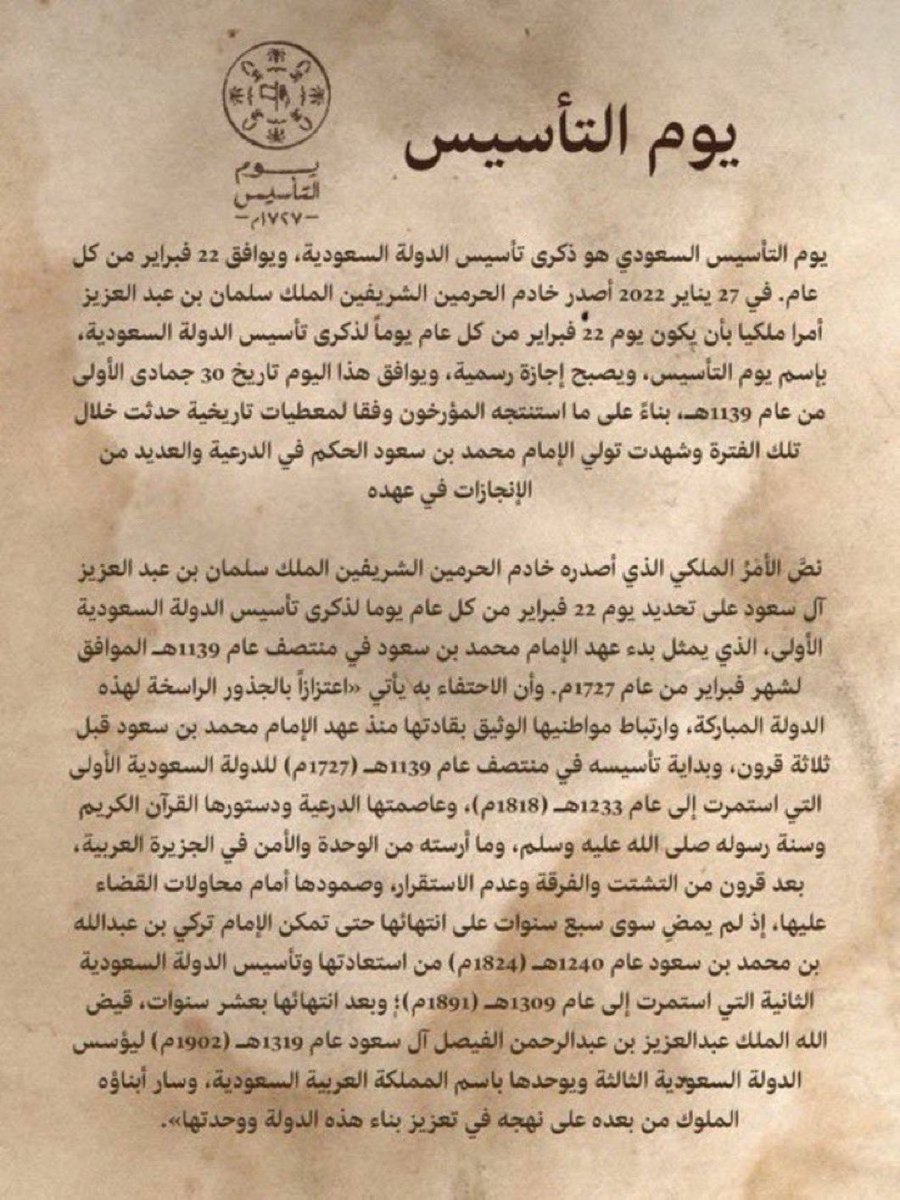 يوم التأسيس
يوم
التأسيس
١٧٢٧م
يوم التأسيس السعودي هو ذكرى تأسيس الدولة السعودية، ويوافق 22 فبراير من كل
عام. في 27 يناير 2022 أصدر خادم الحرمين الشريفين الملك سلمان بن عبد العزيز
أمرا ملكيا بأن يكون يوم 22 فبراير من كل عام يوماً لذكرى تأسيس الدولة السعودية،
بإسم يوم التأسيس، ويصبح إجازة رسمية، ويوافق هذا اليوم تاريخ 30 جمادى الأولى
من عام 1139هـ، بناءً على ما استنتجه المؤرخون وفقا لمعطيات تاريخية حدثت خلال
تلك الفترة وشهدت تولي الإمام محمد بن سعود الحكم في الدرعية والعديد من
الإنجازات في عهده
نصَّ الأمْرُ الملكي الذي أصدره خادم الحرمين الشريفين الملك سلمان بن عبد العزيز
آل سعود على تحديد يوم 22 فبراير من كل عام يوما لذكرى تأسيس الدولة السعودية
الأولى، الذي يمثل بدء عهد الإمام محمد بن سعود في منتصف عام 1139هـ الموافق
لشهر فبراير من عام 1727م. وأن الاحتفاء به يأتي «اعتزازاً بالجذور الراسخة لهذه
الدولة المباركة، وارتباط مواطنيها الوثيق بقادتها منذ عهد الإمام محمد بن سعود قبل
ثلاثة قرون، وبداية تأسيسه في منتصف عام 1139هـ (1727م) للدولة السعودية الأولى
التي استمرت إلى عام 1233هـ (1818م)، وعاصمتها الدرعية ودستورها القرآن الكريم
وسنة رسوله صلى الله عليه وسلم، وما أرسته من الوحدة والأمن في الجزيرة العربية،
بعد قرون من التشتت والفرقة وعدم الاستقرار، وصمودها أمام محاولات القضاء
عليها، إذ لم يمضِ سوى سبع سنوات على انتهائها حتى تمكن الإمام تركي بن عبدالله
بن محمد بن سعود عام 1240هـ (1824م) من استعادتها وتأسيس الدولة السعودية
الثانية التي استمرت إلى عام 1309هـ (1891م)؛ وبعد انتهائها بعشر سنوات، قيض
الله الملك عبدالعزيز بن عبدالرحمن الفيصل آل سعود عام 1319هـ (1902م) ليؤسس
الدولة السعودية الثالثة ويوحدها باسم المملكة العربية السعودية، وسار أبناؤه
الملوك من بعده على نهجه في تعزيز بناء هذه الدولة ووحدتها».